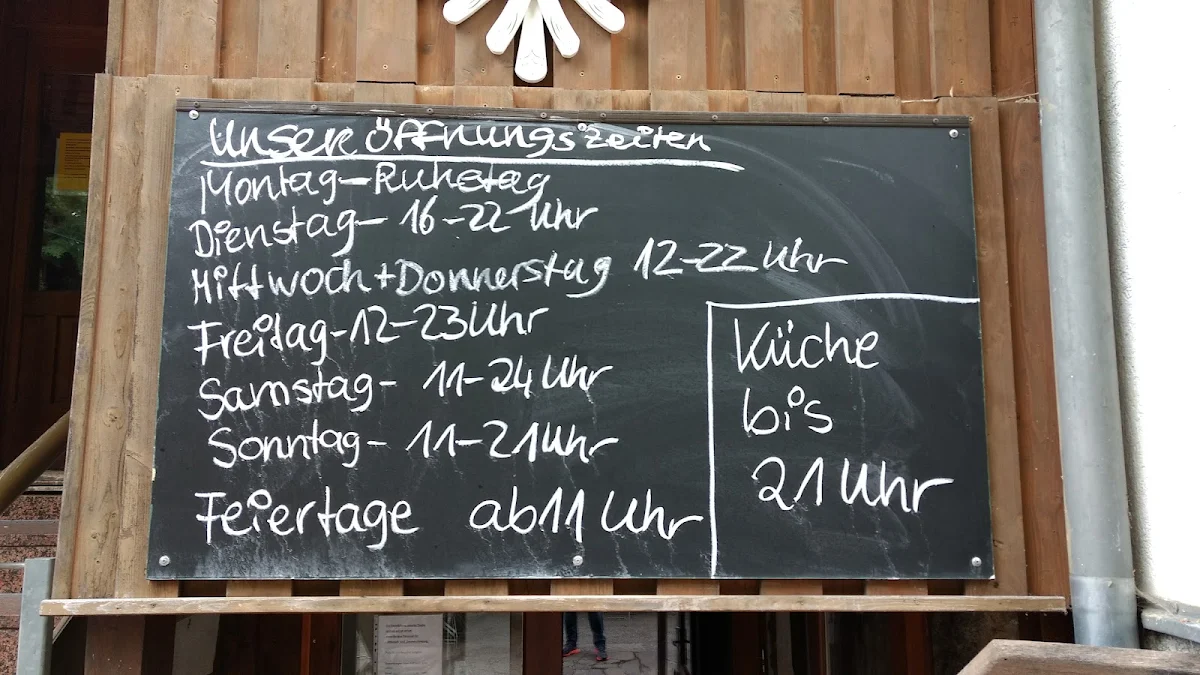 Unsere Öffnungszeiten
Montag-Ruhetag
Dienstag- 16-22 Uhr
Mittwoch+Donnerstag 12-22 Uhr
Freitag-12-23 Uhr
Samstag- 11-24 Uhr
Sonntag- 11-21 Uhr
Feiertage ab 11 Uhr
Küche
bis
21 Uhr